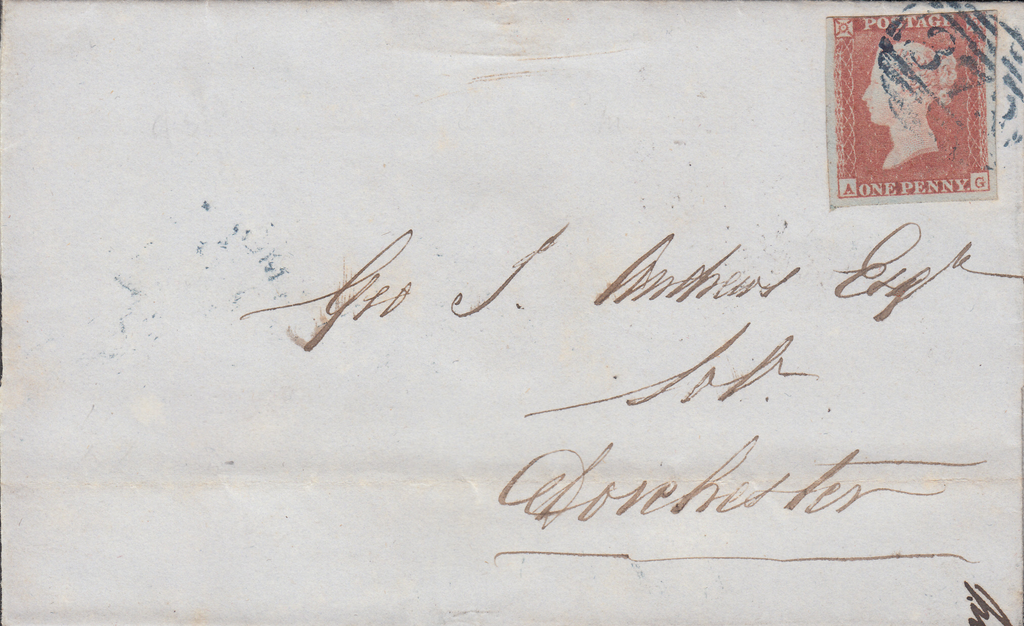 POSTAGE
A ONE PENNY. G
Geo S. Andrews Esqr
Solr.
Dorchester